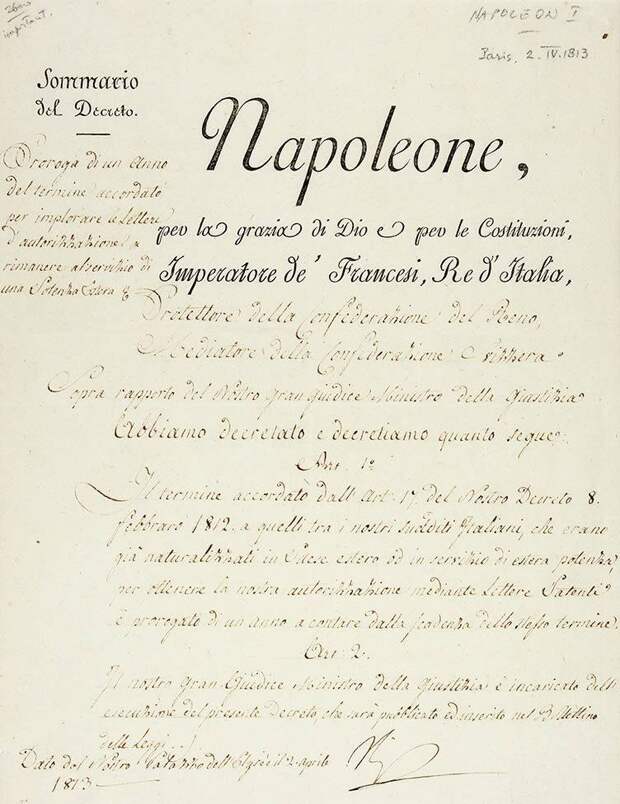 important.
NAPOLEON I
Paris, 2. IV. 1813
Sommario
del Decreto.
Proroga di un Anno
del termine accordato
per implorare le Lettere
d'autorizzazione a
rimanere al servizio di
una Potenza Estera
Napoleone,
per la grazia di Dio e per le Costituzioni,
Imperatore de' Francesi, Re d'Italia,
Protettore della Confederazione del Reno,
Mediatore della Confederazione Svizzera
Sopra rapporto del Nostro Gran Giudice Ministro della Giustizia
Abbiamo decretato e decretiamo quanto segue:
Art. 1º
Il termine accordato dall' Art. 17. del Nostro Decreto 8.
Febbraro 1812. a quelli tra i nostri sudditi Italiani, che erano
già naturalizzati in Paese estero od in servizio di estera potenza,
per ottenere la nostra autorizzazione mediante Lettere Patenti
è prorogato di un anno a contare dalla scadenza dello stesso termine.
Art. 2.
Il nostro Gran Giudice Ministro della Giustizia è incaricato dell'
esecuzione del presente Decreto, che sarà pubblicato ed inserito nel Bollettino
delle Leggi
Dato dal Nostro Palazzo dell'Elysée il 2. aprile
1813